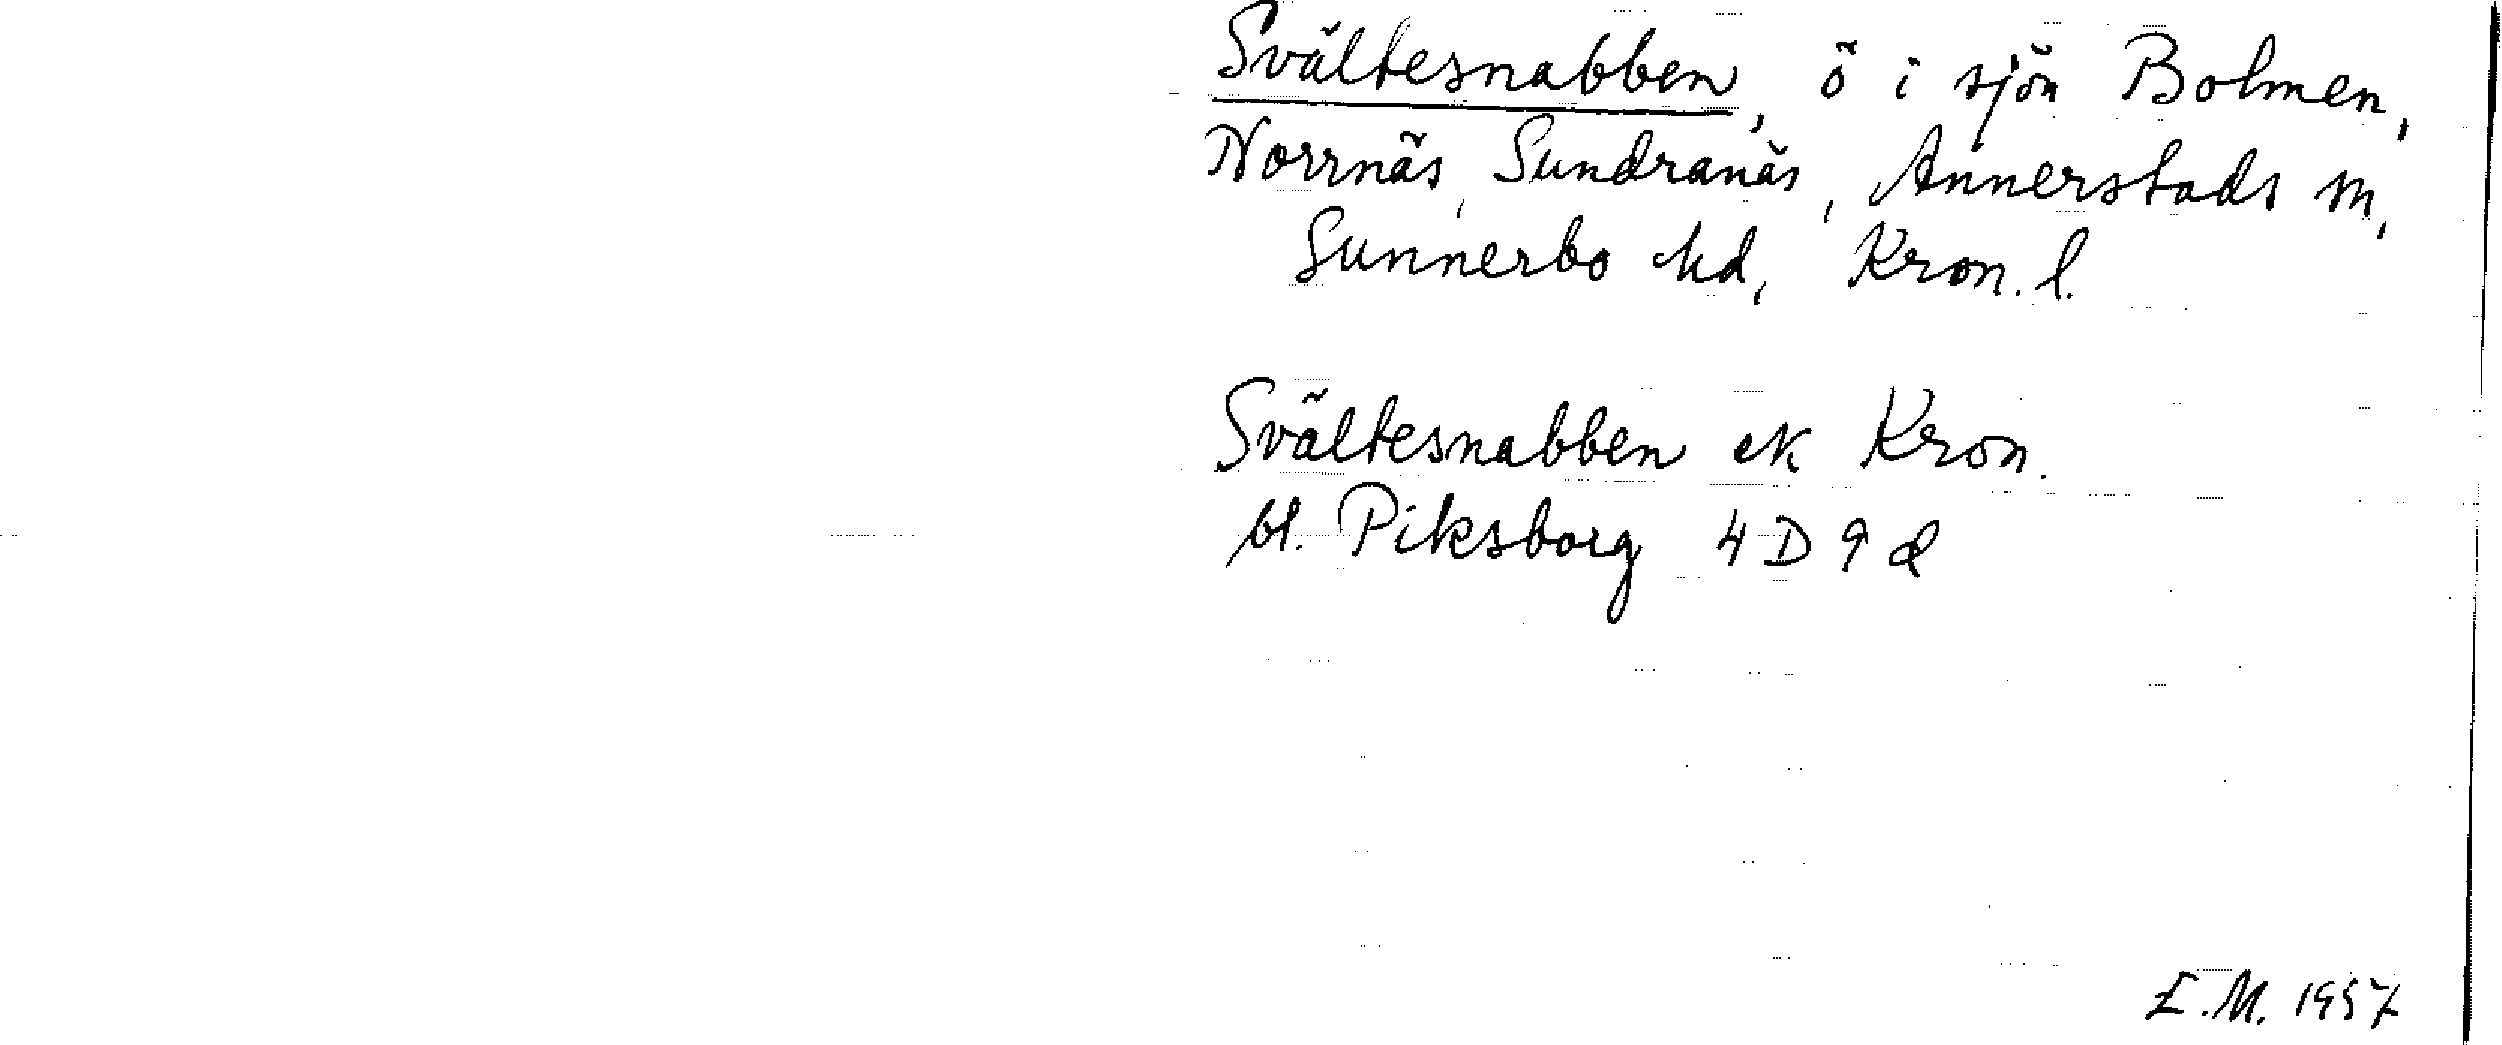 Svältesnabben, ö i sjön Bolmen,
Norrnäs, Sundranäs, Annerstads sn,
Sunnerbo hd, Kron. l.
Svältesnabben ek Kron.
bl. Piksborg 4 D 9 d
E.M. 1957